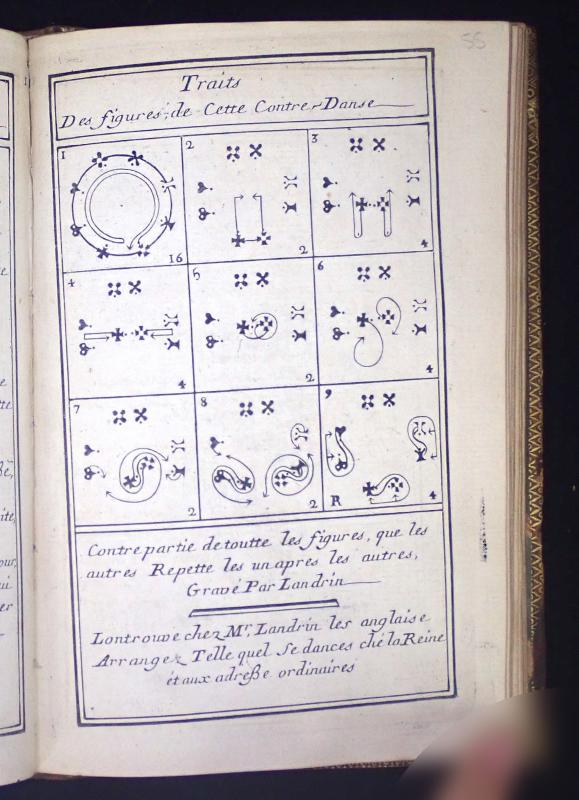 55
Traits
Des figures de Cette Contre-Danse
1
16
2
2
3
4
4
4
5
2
6
4
7
2
8
2
9
R
4
Contre partie de toutte les figures, que les
autres Repette les un apres les autres,
Gravé Par Landrin
Lontrouve chez Mr. Landrin les anglaise
Arrangez Telle quel Se dances ché la Reine
et aux adreße ordinaires